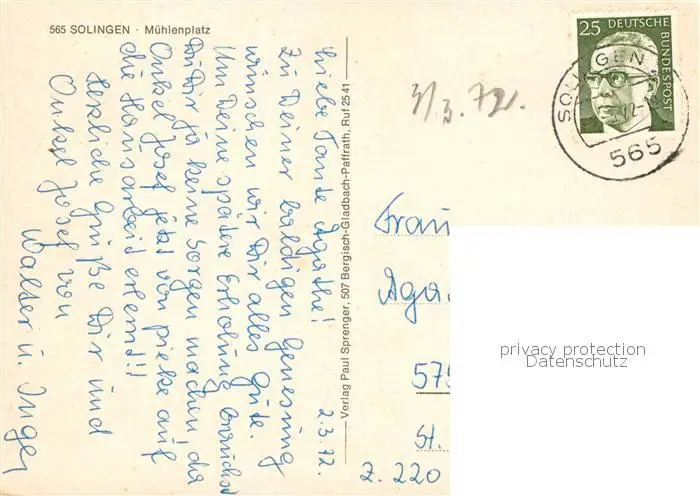 565 SOLINGEN · Mühlenplatz
2.3.72.
Liebe Tante Agathe!
Zu Deiner baldigen Genesung
wünschen wir Dir alles Gute.
Um Deine spätere Erholung brauchst
Du Dir ja keine Sorgen machen, da
Onkel Josef jetzt von pieke auf
die Hausarbeit erlernt!!
Herzliche Grüße Dir und
Onkel Josef von
Walter u. Inge
Verlag Paul Sprenger, 507 Bergisch-Gladbach-Paffrath, Ruf 25 41
3/3.72.
25 DEUTSCHE BUNDESPOST
SOLINGEN
565
Frau
Aga
575
St.
Z. 220
privacy protection
Datenschutz